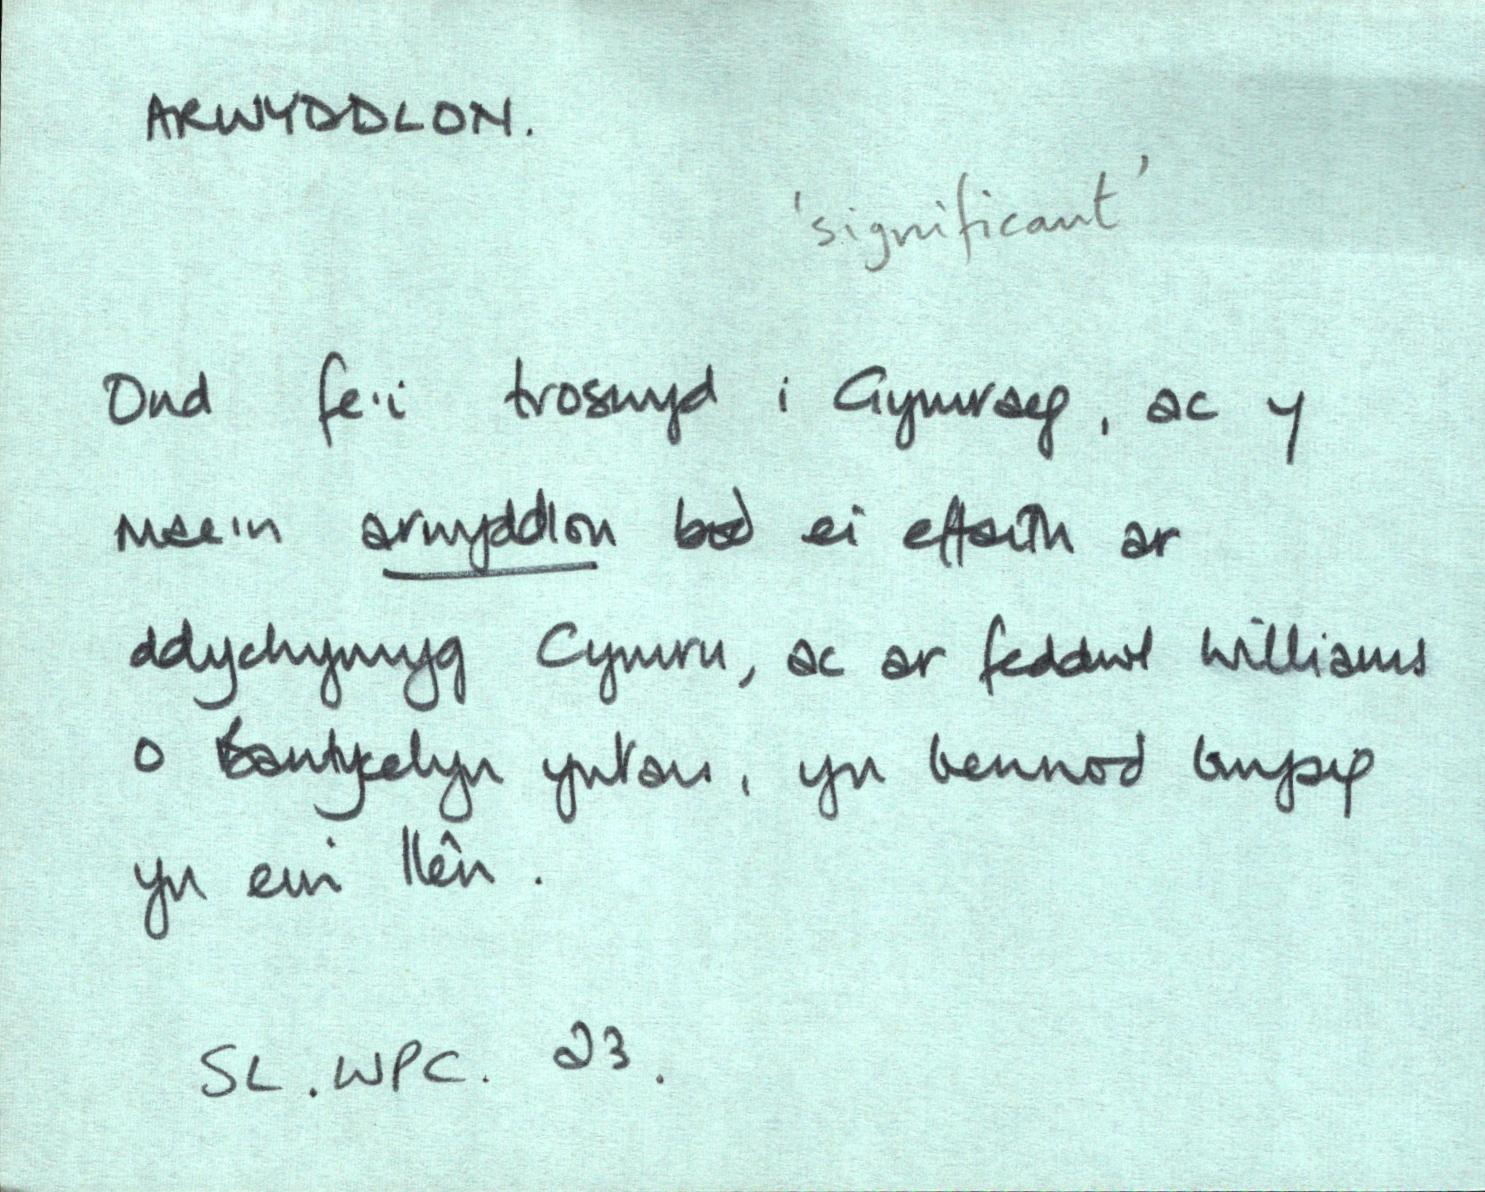 ARWYDDLON.
'significant'
Ond fe'i troswyd i Gymraeg, ac y
mae'n arwyddlon bod ei effaith ar
ddychymyg Cymru, ac ar feddwl Williams
o Bantycelyn yntau, yn bennod bwysig
yn ein llên.
SL. WPC. 23.